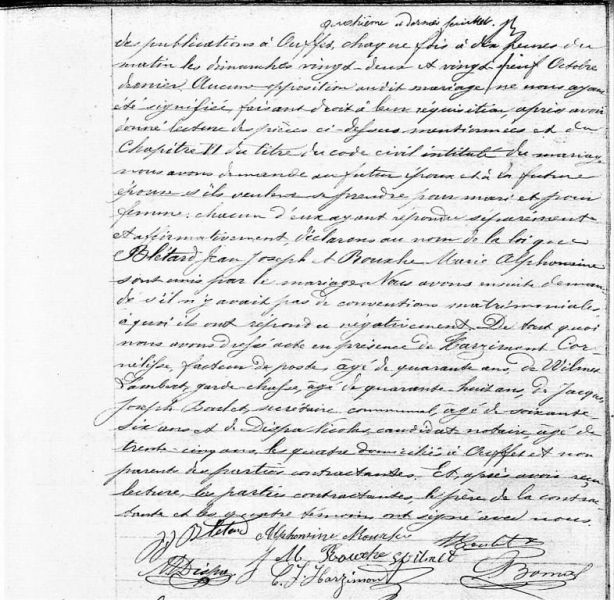 quatrième et dernier feuillet.
des publications à Ouffet, chaque fois à dix heures du
matin les dimanches vingt-deux et vingt-neuf Octobre
dernier. Aucune opposition audit mariage ne nous ayant
été signifiée, faisant droit à leur réquisition après avoir
donné lecture des pièces ci-dessus mentionnées et du
Chapitre VI du titre du code civil intitulé du mariage
nous avons demandé au futur époux et à la future
épouse s'ils veulent se prendre pour mari et pour
femme: chacun d'eux ayant répondu séparément
et affirmativement, déclarons au nom de la loi que
Blétard Jean Joseph et Bourhe Marie Alphonsine
sont unis par le mariage. Nous avons ensuite deman-
dé s'il n'y avait pas de conventions matrimoniales
à quoi ils ont répondu négativement. De tout quoi
nous avons dressé acte en présence de Harzimont Cor-
nélisse, facteur de poste, âgé de quarante ans, de Wilmet
Lambert, garde chasse, âgé de quarante-huit ans, de Jacques
Joseph Boulet, secrétaire communal, âgé de soixante-
six ans et de Dispa Nicolas, candidat notaire, âgé de
trente-cinq ans, les quatre domiciliés à Ouffet et non
parents des parties contractantes. Et, après avoir reçu
lecture, les parties contractantes, le père de la contrac-
tante et les quatre témoins ont signé avec nous.
JJ Bletard Alphonsine Bourhe Boulet
N Dispa J. M. Bourhe Wilmet
C. J. Harzimont